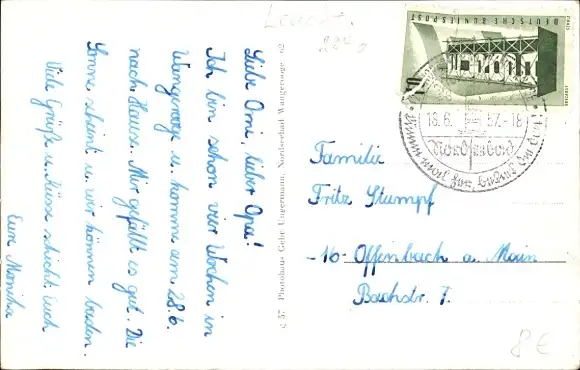 Leucht.
Liebe Omi, lieber Opa!
Ich bin schon vier Wochen in
Wangerooge u. komme am 28.6.
nach Hause. Mir gefällt es gut. Die
Sonne scheint u. wir können baden.
Viele Grüße u. Küsse schickt Euch
Eure Monika
c 57 Photohaus Gebr. Ungermann, Nordseebad Wangerooge 62
DEUTSCHE BUNDESPOST
10
EUROPA
18.6.57.-18
Nordseebad
Familie
Fritz Stumpf
-16- Offenbach a. Main
Bachstr. 7.
8 €